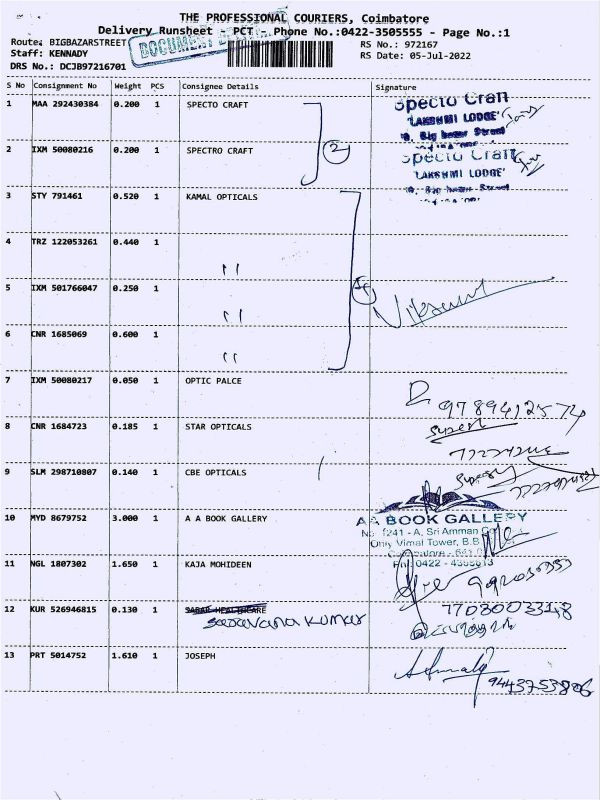 THE PROFESSIONAL COURIERS, Coimbatore
Delivery Runsheet - PCT - Phone No.:0422-3505555 - Page No.:1
Route: BIGBAZARSTREET
RS No.: 972167
Staff: KENNADY
RS Date: 05-Jul-2022
DRS No.: DCJB97216701
DOCUMENT
S No Consignment No Weight PCS Consignee Details Signature
1 MAA 292430384 0.200 1 SPECTO CRAFT
Specto Craft
'LAKSHMI LODGE'
Big bazar Street
2 IXM 50080216 0.200 1 SPECTRO CRAFT
2
Specto Craft
'LAKSHMI LODGE'
Big bazar Street
3 STY 791461 0.520 1 KAMAL OPTICALS
4 TRZ 122053261 0.440 1 ''
5 IXM 501766047 0.250 1 ''
4
6 CNR 1685069 0.600 1 ''
7 IXM 50080217 0.050 1 OPTIC PALCE
9789412574
8 CNR 1684723 0.185 1 STAR OPTICALS
9 SLM 298710807 0.140 1 CBE OPTICALS
10 MYD 8679752 3.000 1 A A BOOK GALLERY
A A BOOK GALLERY
1241 - A, Sri Amman
Vimal Tower, B.B
Ph: 0422 -
11 NGL 1807302 1.650 1 KAJA MOHIDEEN
12 KUR 526946815 0.130 1 SABAR HEALTHCARE
Saravana Kumar
7708003318
13 PRT 5014752 1.610 1 JOSEPH
9443753806